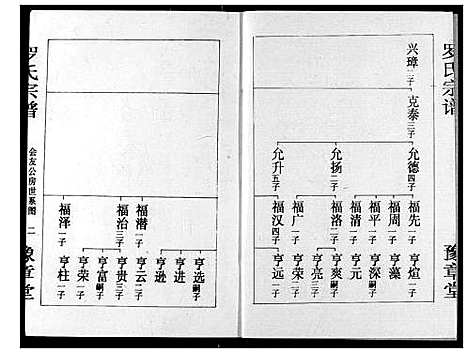 罗氏宗谱
豫章堂
兴璋二子
克泰三子
允德四子
允扬二子
允升五子
福先一子
福周一子
福平一子
福清一子
福洛二子
福广一子
福汉四子
亨煊一子
亨藻
亨深一子
亨元
亨爽嗣子
亨亮三子
亨荣二子
亨远一子
罗氏宗谱
会友公房世系图
二
豫章堂
福潜一子
福治三子
福泽一子
亨选嗣子
亨进
亨逊
亨云二子
亨贵三子
亨富嗣子
亨荣一子
亨柱一子